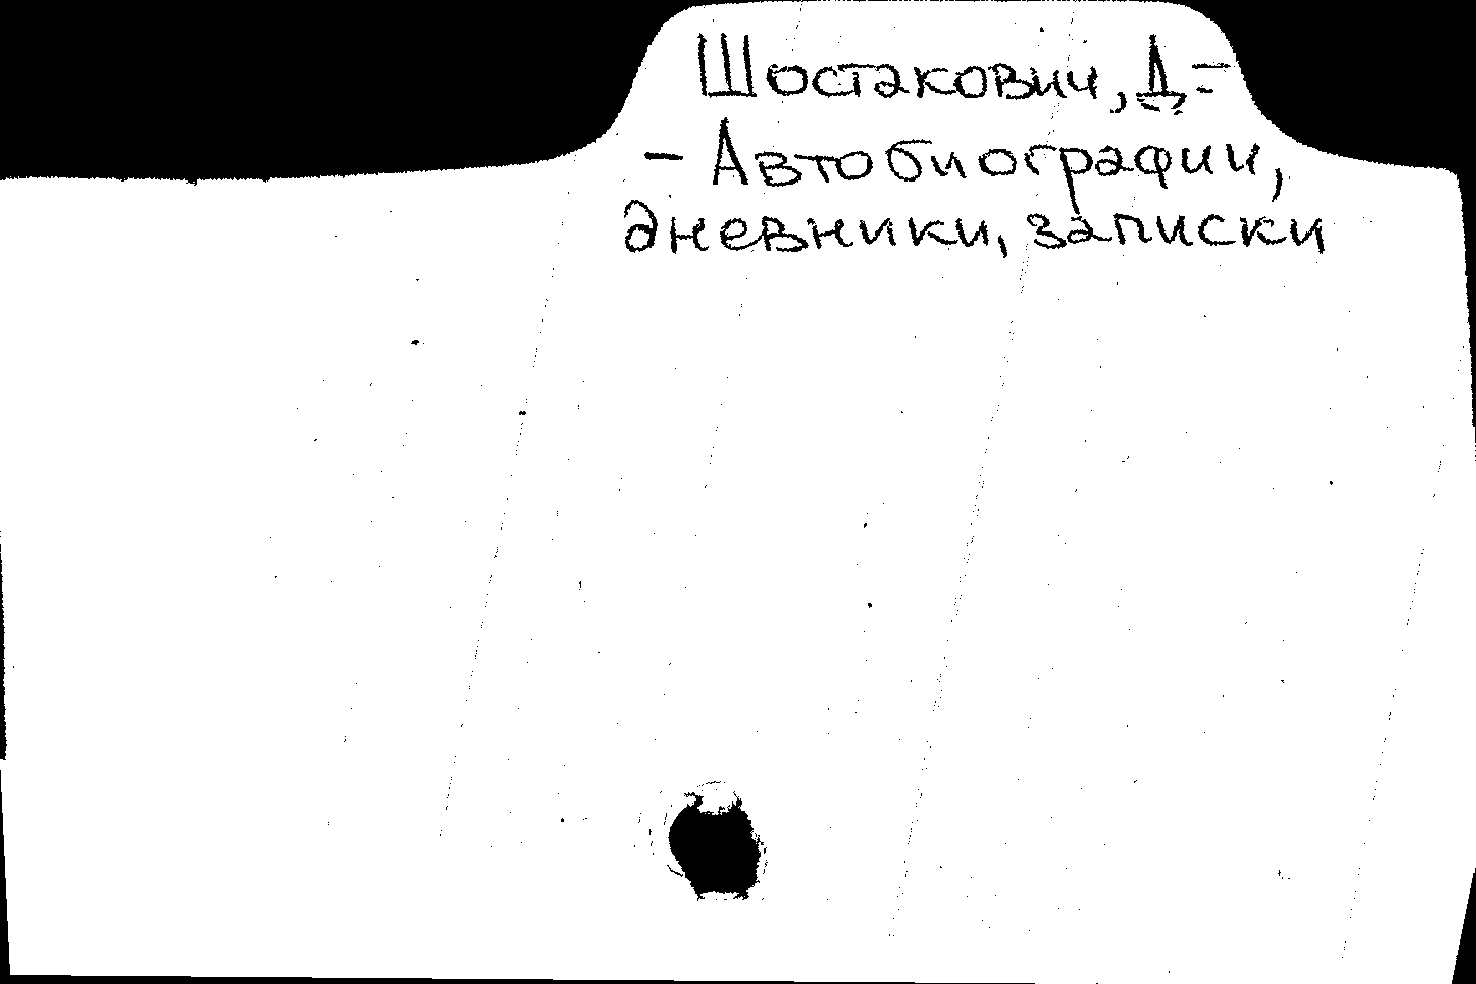 Шостакович, Д. –
– Автобиографии,
дневники, записки